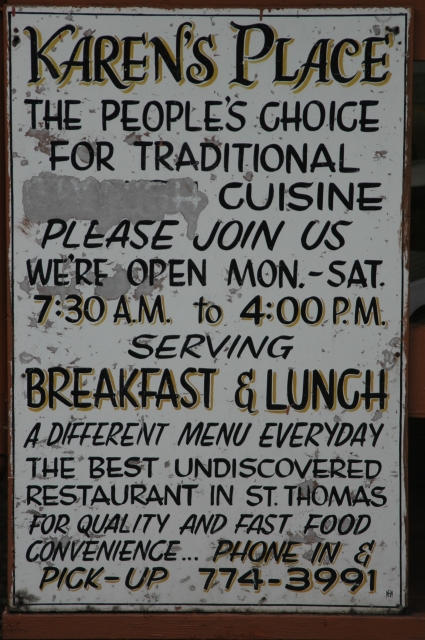 KAREN'S PLACE
THE PEOPLE'S CHOICE
FOR TRADITIONAL
CUISINE
PLEASE JOIN US
WE'RE OPEN MON.-SAT.
7:30 A.M. to 4:00 P.M.
SERVING
BREAKFAST & LUNCH
A DIFFERENT MENU EVERYDAY
THE BEST UNDISCOVERED
RESTAURANT IN ST. THOMAS
FOR QUALITY AND FAST FOOD
CONVENIENCE... PHONE IN &
PICK-UP 774-3991